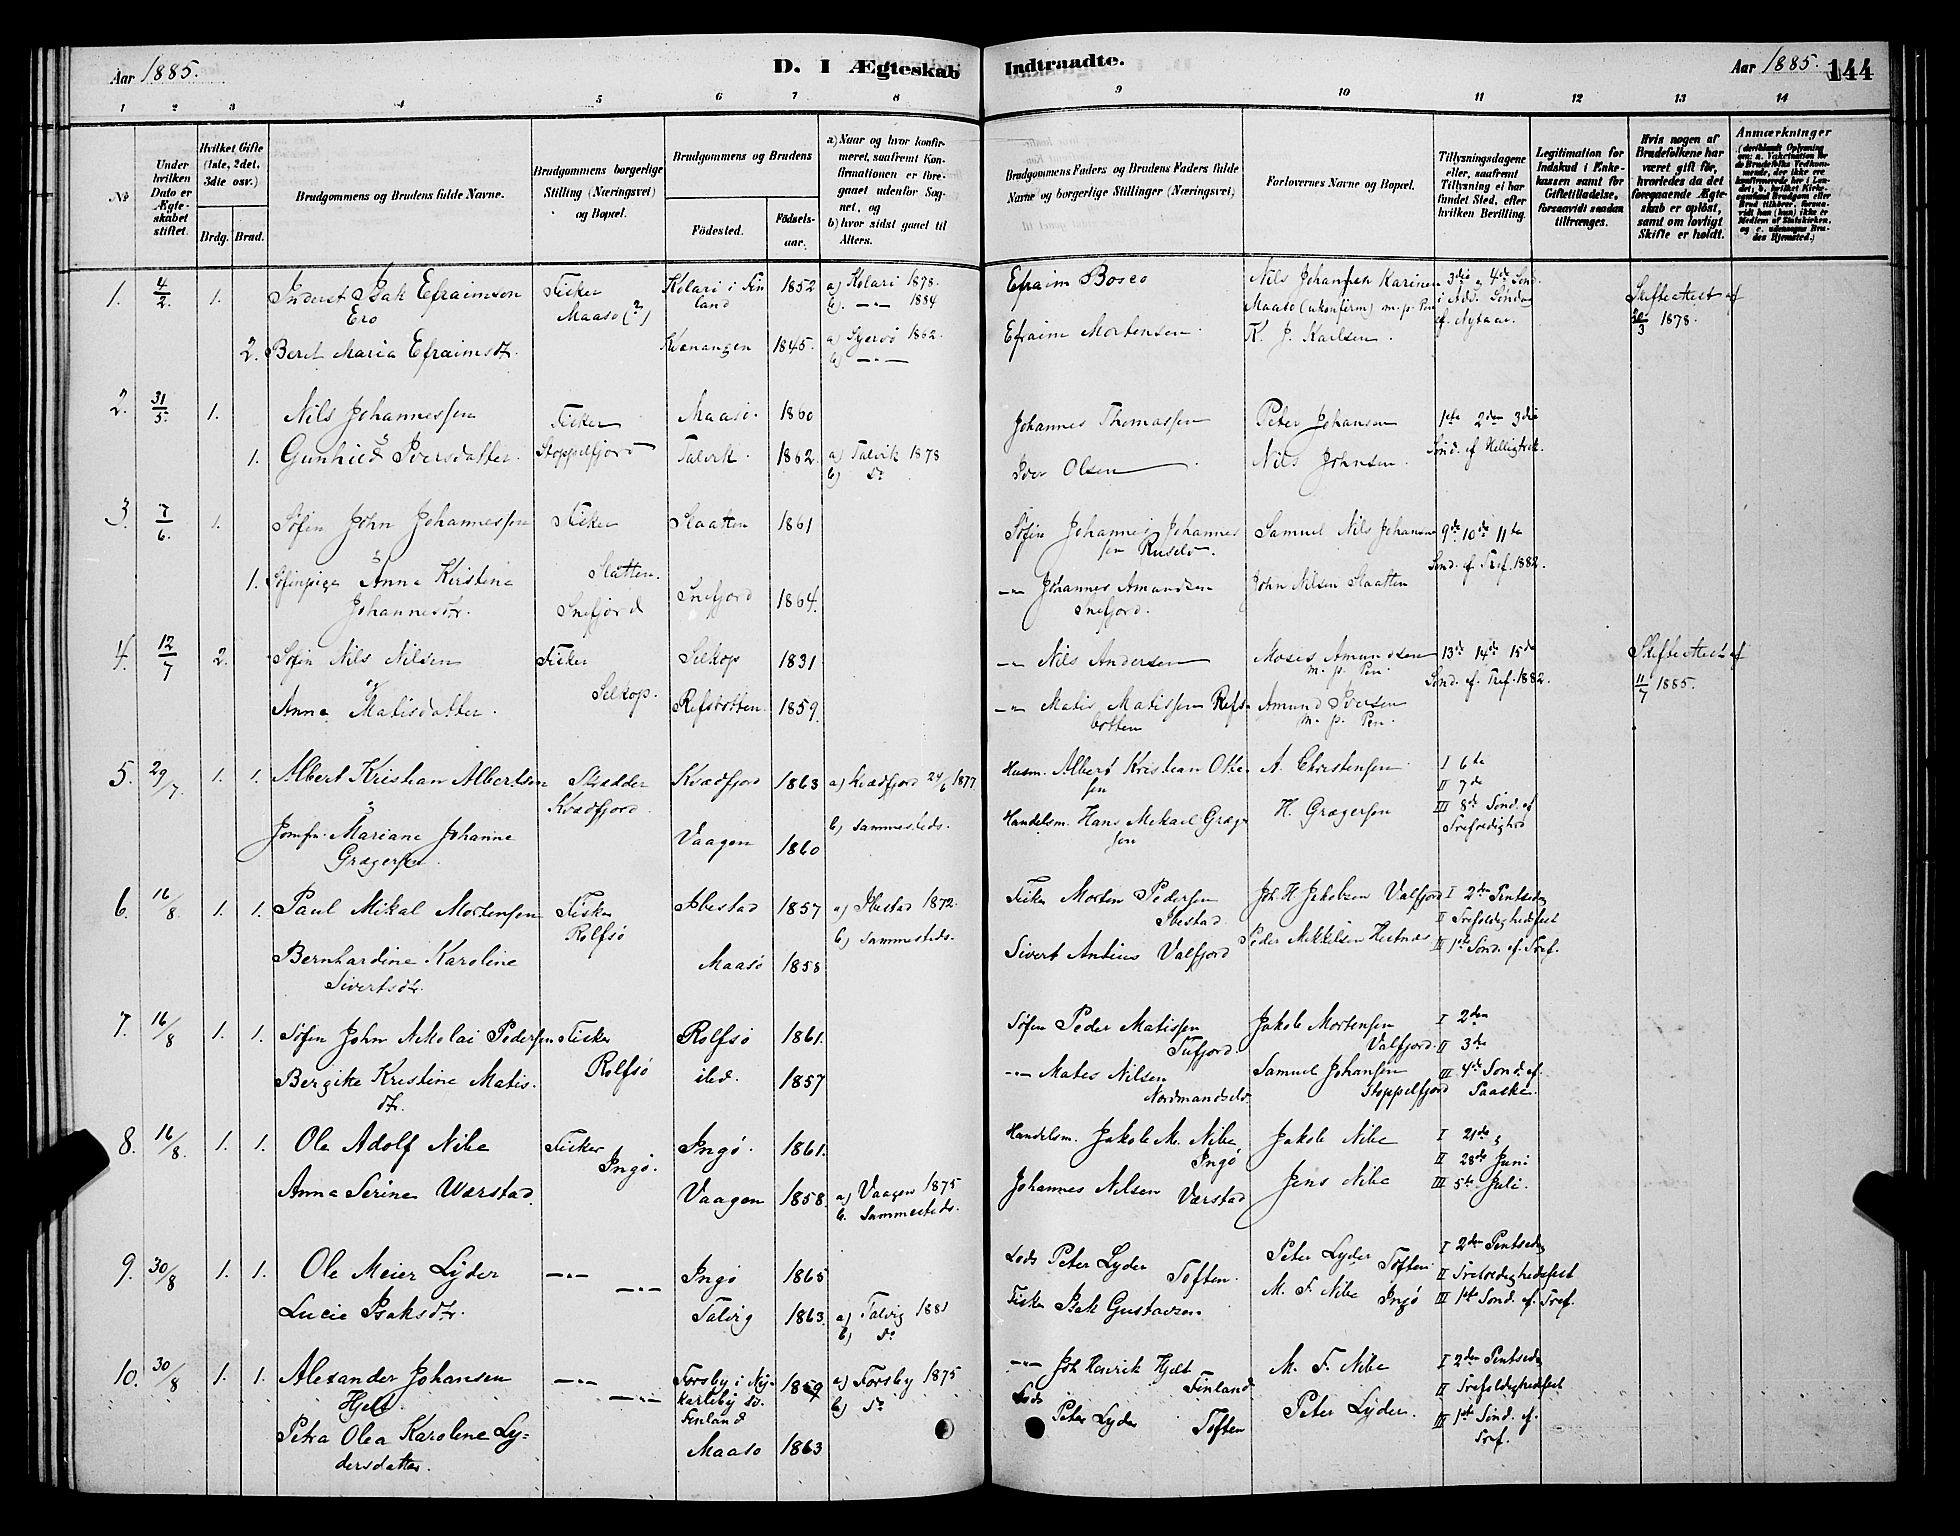 Aar 1885.
D. I Ægteskab
Indtraadte.
Aar 1885.
144
1 2 3 4 5 6 7 8 9 10 11 12 13 14
No
Under hvilken Dato er Ægteskabet stiftet.
Hvilket Gifte (1ste, 2det, 3die osv.)
Brdg. Brud.
Brudgommens og Brudens fulde Navne.
Brudgommens borgerlige Stilling (Næringsvei) og Bopæl.
Brudgommens og Brudens
Fødested. Fødselsaar.
a) Naar og hvor konfirmeret, saafremt Konfirmationen er foregaaet udenfor Sognet, og
b) hvor sidst gaaet til Alters.
Brudgommens Faders og Brudens Faders fulde Navne og borgerlige Stillinger (Næringsvei)
Forlovernes Navne og Bopæl.
Tillysningsdagene eller, saafremt Tillysning ei har fundet Sted, efter hvilken Bevilling.
Legitimation for Indskud i Enkekassen samt for Giftetilladelse, forsaavidt saadan tiltrænges.
Hvis nogen af Brudefolkene har været gift før, hvorledes da det foregaaende Ægteskab er opløst, samt om lovligt Skifte er holdt.
Anmærkninger
1. 4/2. 1. Inderst Isak Efraimsen Ero Fisker Maasø (?) Kolari i Finland 1852 a) Kolari 1878. b) -"- 1884 Efraim Bosco Nils Johannsen Karinen Maasø (ukonfirm) m. p. Pen 3die & 4de Sønd. i Adv. Sønd. ef. Nytaar. Skifteattest af 20/3 1878.
2. Beret Maria Efraimsdtr. Kvænangen 1845. a) Skjervø 1862. b) -"- Efraim Mortensen K. J. Karlsen.
2. 31/5. 1. Nils Johannessen Fisker Maasø. 1860 Johannes Thomassen Peter Johansen 1ste 2den 3die
1. Gunhild Iversdatter. Stoppelfjord Talvik 1862. a) Talvik 1878 b) Do Iver Olsen Nils Johnsen. Sønd. ef Helligtrek.
3. 7/6. 1. Søfin John Johannessen Fisker Slaatten 1861 Søfin Johannes Johannessen Ruselv. Samuel Nils Johansen 9de 10de 11te
1. Søfinpige Anna Kirstina Johannesdtr. Slatten. Snefjord Snefjord 1864. -"- Johannes Amundsen Snefjord. John Nilsen Slaatten Sønd. ef Tref. 1882.
4. 12/7 2. Søfin Nils Nilsen Fisker Selkop 1831 -"- Nils Andersen Moses Amundsen m. p. Pen. 13de 14de 15de Skifteattest af
Anna Matisdatter. Selkop. Refsbotten 1859. -"- Matis Matissen Refsbotten Amund Iversen m. p. Pen. Sønd. ef. Tref. 1882. 11/7 1885.
5. 29/7. 1. 1. Albert Kristian Albertsen Skrædder Kvædfjord. Kvædfjord 1863 a) Kvædfjord 24/6 1877 b) Sammesteds. Husm. Albert Kristian Ottesen A. Christensen I 6te II 7de III 8de Sønd. ef Trefoldighed
Jomfr. Mariane Johanne Grægersen. Vaagen 1860 Handelsm. Hans Mekael Grægersen H. Grægersen
6. 16/8. 1. 1. Paul Mikal Mortensen Fisker Rolfsø Ibestad 1857 a) Ibestad 1872. b) Sammesteds. Fisker Morten Pedersen Ibestad Joh. H Jakobsen Valfjord I 2den Pintsedag II Trefoldighedsfest
Bernhardine Karoline Sivertsdtr. Maasø 1858 Sivert Antius Valfjord Peder Mikkelsen Hestnæs III 1ste Sønd. ef. Tref.
7. 16/8 1. 1. Søfin John Nikolai Pedersen Fisker Rolfsø Rolfsø 1861. Søfin Peder Matissen Tufjord. Jakob Mortensen Valfjord. I 2den II 3de
Bergike Kristine Matisdtr. ibd. 1857 -"- Mates Nilsen Nordmandselv. Samuel Johansen Stoppelfjord III 4de Sønd. ef. Paaske.
8. 16/8. 1. 1. Ole Adolf Nibe Fisker Ingø. Ingø. 1861. Handelsm. Jakob M. Nibe Ingø Jakob Nibe I 21de II 28de Juni
Anna Serine Værstad. Vaagen 1858. a) Vaagen 1875 b. Sammesteds. Johannes Nilsen Værstad Jens Nibe III 5te Juli.
9. 30/8 1. 1. Ole Meier Lyder -"- -"- Ingø 1865 Lods Peter Lyder Toften. Peter Lyder Toften I 2den Pintsedag II Trefoldighedsfest
Lucie Isaksdtr. Talvig 1863. a) Talvig 1881 b) Do Fisker Isak Gustavsen M. F. Nibe Ingø III 1ste Sønd. ef. Tref.
10. 30/8 1. 1. Alexander Johansen Hjelt. -"- -"- Forsby i Nykarleby s. Finland 1859 a) Forsby 1875 b) Do -"- Joh Henrik Hjelt Finland M. F. Nibe I 2den Pintsedag II Trefoldighedsfest
Petra Olea Karoline Lydersdatter. Maasø 1863 Lods Peter Lyder Toften Peter Lyder. III 1ste Sønd. ef. Tref.